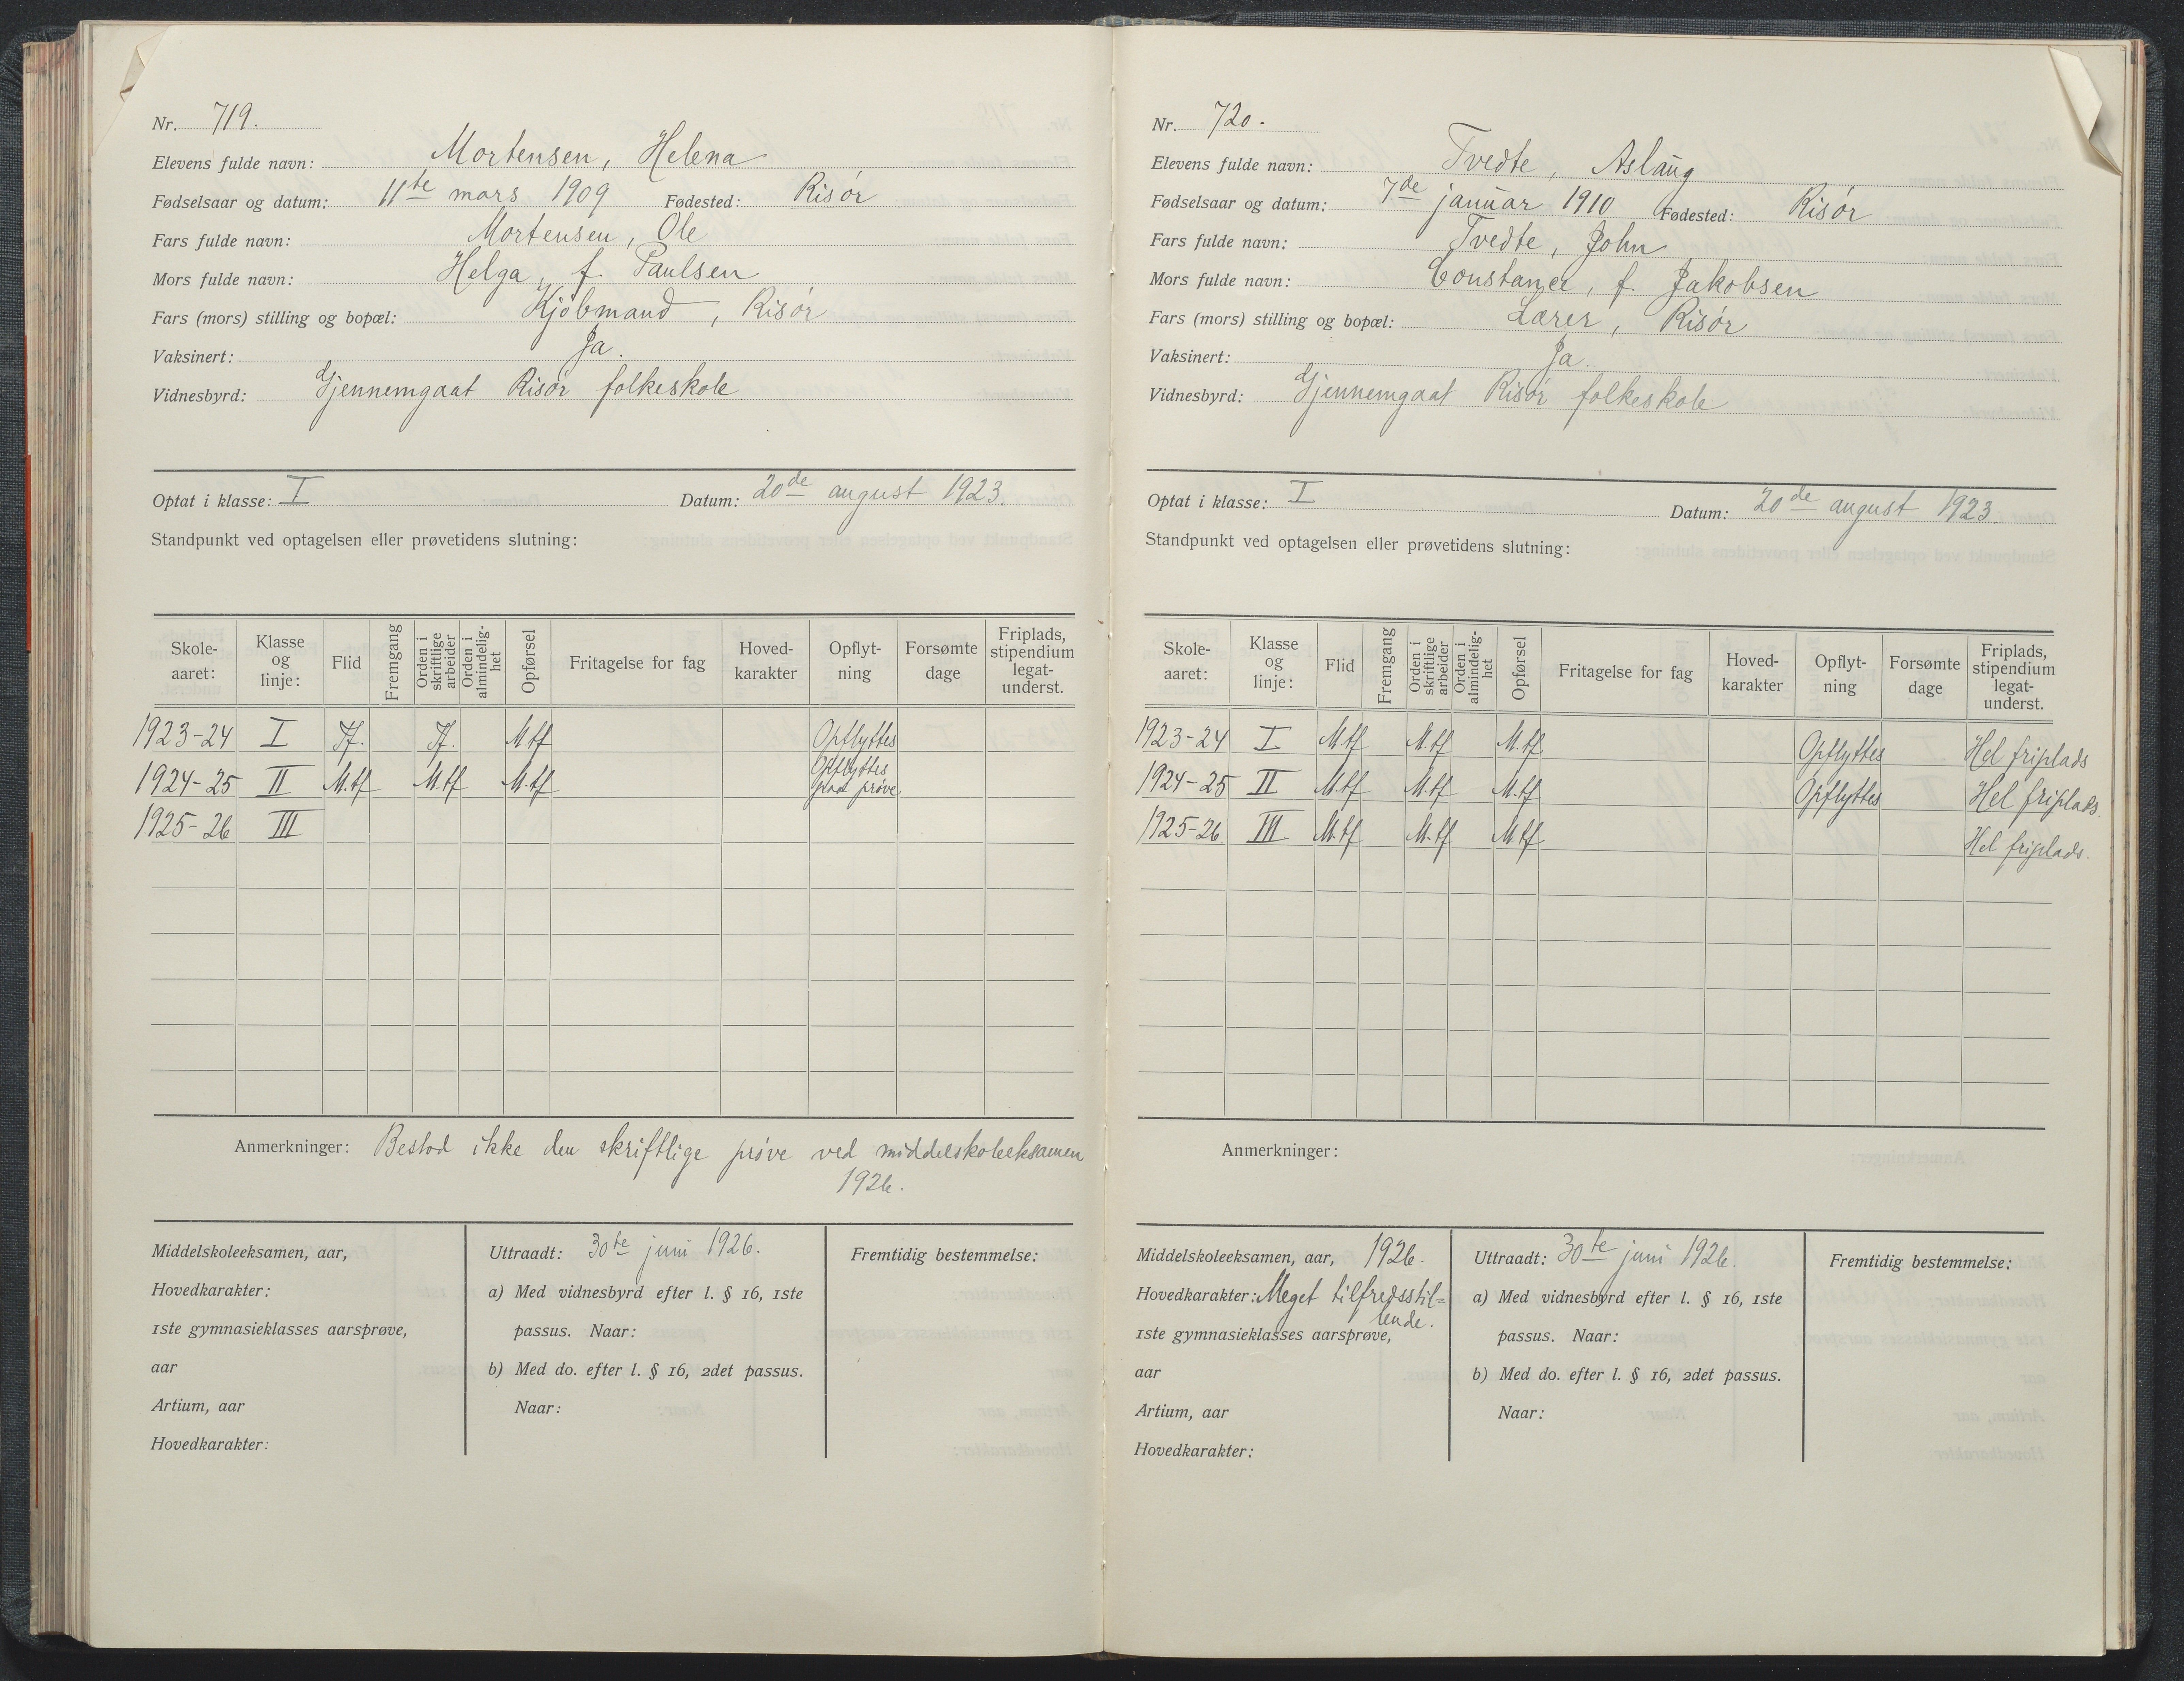 Nr. 719.
Elevens fulde navn: Mortensen, Helena
Fødselsaar og datum: 11te mars 1909 Fødested: Risør
Fars fulde navn: Mortensen, Ole
Mors fulde navn: Helga, f. Paulsen
Fars (mors) stilling og bopæl: Kjøbmand, Risør
Vaksinert: Ja.
Vidnesbyrd: Gjennemgaat Risør folkeskole
Optat i klasse: I Datum: 20de august 1923.
Standpunkt ved optagelsen eller prøvetidens slutning:
Skole-aaret: Klasse og linje: Flid Fremgang Orden i skriftlige arbeider Orden i almindelig-het Opførsel Fritagelse for fag Hoved-karakter Opflyt-ning Forsømte dage Friplads, stipendium legat-underst.
1923-24 I Tf. Tf. Mtf Opflyttes
1924-25 II M.tf M.tf M.tf Opflyttes paa prøve
1925-26 III
Anmerkninger: Bestod ikke den skriftlige prøve ved middelskoleeksamen
1926.
Middelskoleeksamen, aar,
Hovedkarakter:
1ste gymnasieklasses aarsprøve,
aar
Artium, aar
Hovedkarakter:
Uttraadt: 30te juni 1926.
a) Med vidnesbyrd efter l. § 16, 1ste
passus. Naar:
b) Med do. efter l. § 16, 2det passus.
Naar:
Fremtidig bestemmelse:
Nr. 720.
Elevens fulde navn: Tvedte, Aslaug
Fødselsaar og datum: 7de januar 1910 Fødested: Risør
Fars fulde navn: Tvedte, John
Mors fulde navn: Constance, f. Jakobsen
Fars (mors) stilling og bopæl: Lærer, Risør
Vaksinert: Ja.
Vidnesbyrd: Gjennemgaat Risør folkeskole
Optat i klasse: I Datum: 20de august 1923.
Standpunkt ved optagelsen eller prøvetidens slutning:
Skole-aaret: Klasse og linje: Flid Fremgang Orden i skriftlige arbeider Orden i almindelig-het Opførsel Fritagelse for fag Hoved-karakter Opflyt-ning Forsømte dage Friplads, stipendium legat-underst.
1923-24 I M.tf M.tf M.tf Opflyttes Hel friplads
1924-25 II M.tf M.tf M.tf Opflyttes Hel friplads.
1925-26 III M.tf M.tf M.tf Hel friplads.
Anmerkninger:
Middelskoleeksamen, aar, 1926.
Hovedkarakter: Meget tilfredsstil=
lende.
1ste gymnasieklasses aarsprøve,
aar
Artium, aar
Hovedkarakter:
Uttraadt: 30te juni 1926.
a) Med vidnesbyrd efter l. § 16, 1ste
passus. Naar:
b) Med do. efter l. § 16, 2det passus.
Naar:
Fremtidig bestemmelse: